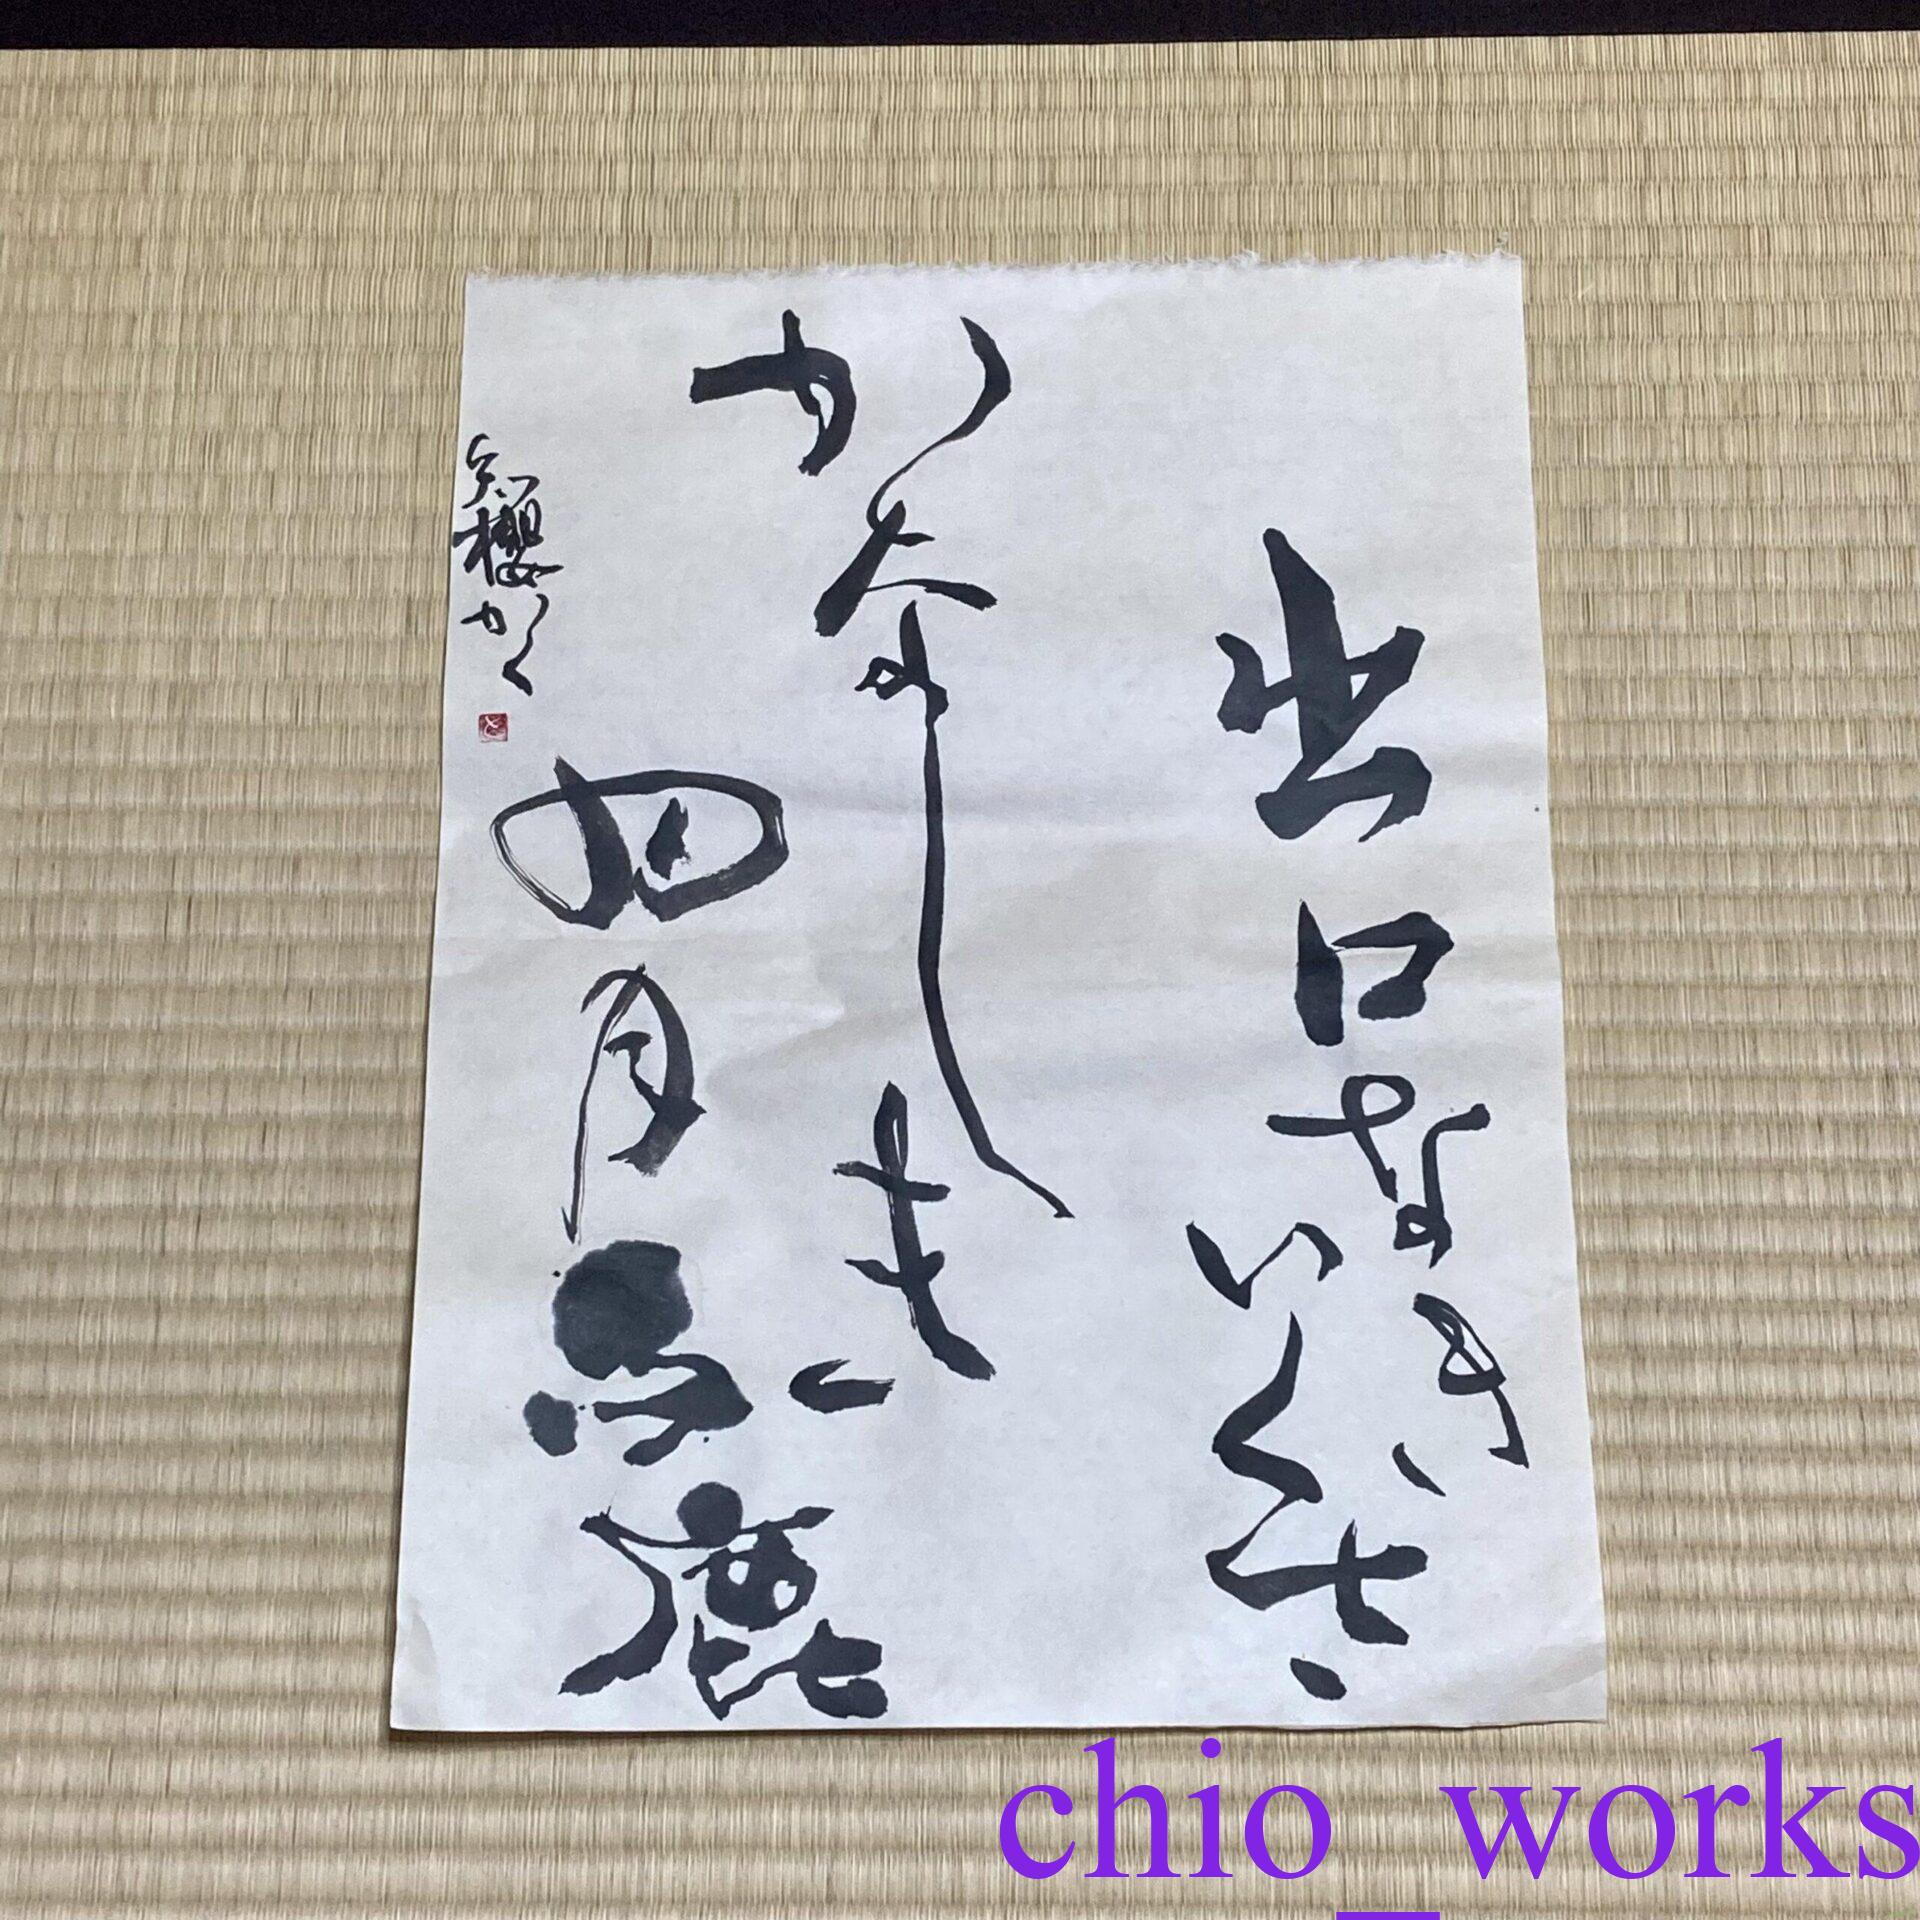 出口なき
いくさ
かなしき
四月馬鹿
知櫻かく
chio_works